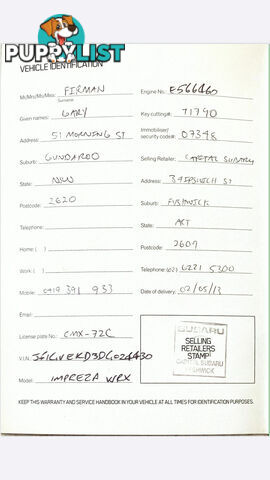 PUPPYLIST
VEHICLE IDENTIFICATION
Mr/Mrs/Ms/Miss: FIRMAN
Surname
Given names: GARY
Address: 51 MORNING ST
Suburb: GUNDAROO
State: NSW
Postcode: 2620
Telephone:
Home: ( )
Work: ( )
Mobile: 0419 391 953
Email:
License plate No.: CMX-72C
V.I.N.:
Model: IMPREZA WRX
Engine No.: E566460
Key cutting#: 71790
Immobiliser/
security code#: 07348
Selling Retailer: CAPITAL SUBARU
Address: IPSWICH ST
Suburb: FYSHWICK
State: ACT
Postcode: 2609
Telephone: (02) 6221 5300
Date of delivery: 02/05/13
SUBARU
SELLING
RETAILERS
STAMP
CAPITAL SUBARU
FYSHWICK
KEEP THIS WARRANTY AND SERVICE HANDBOOK IN YOUR VEHICLE AT ALL TIMES FOR IDENTIFICATION PURPOSES.